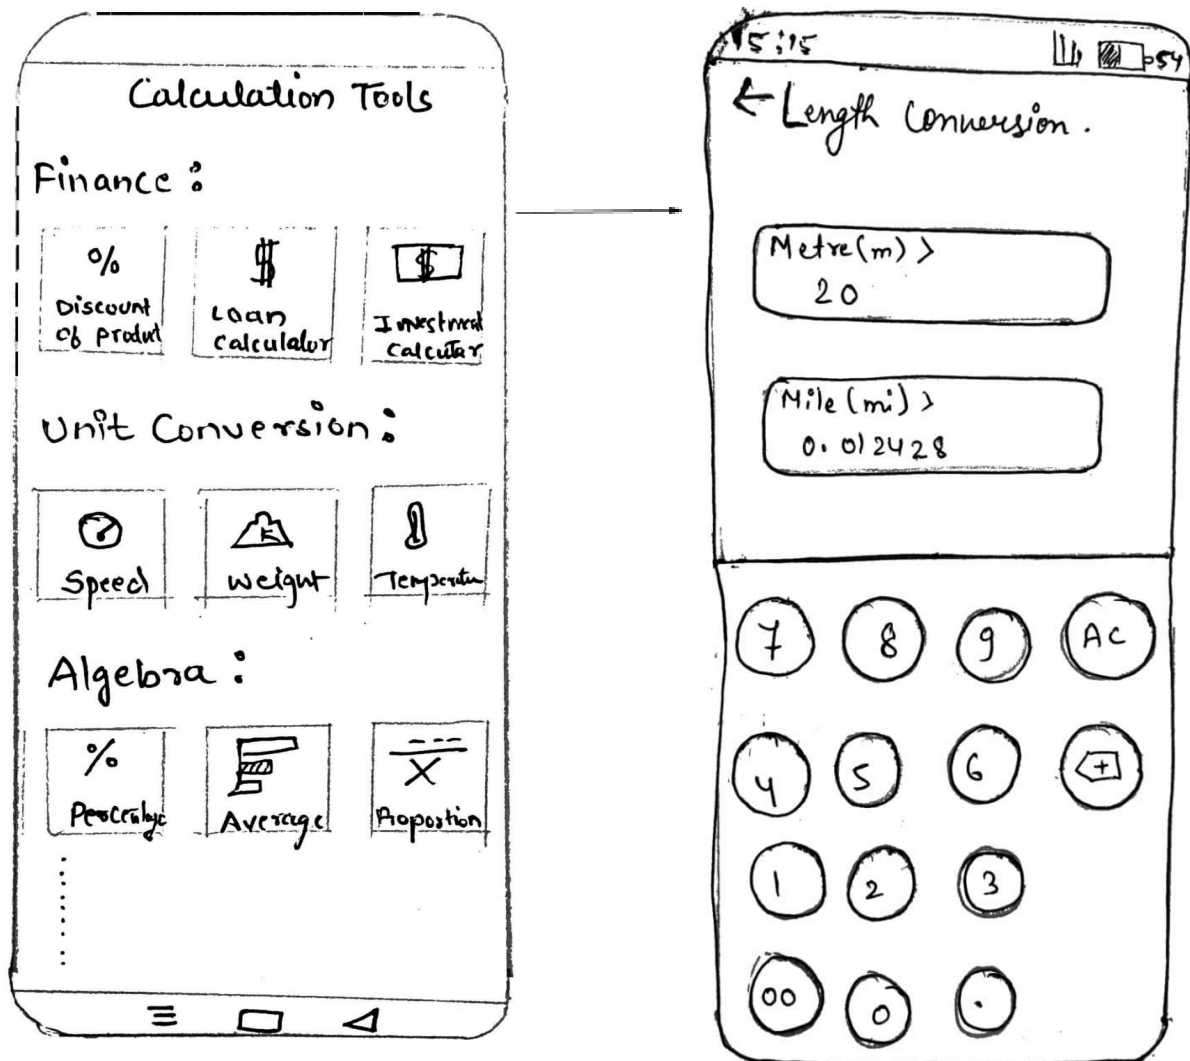 Calculation Tools
Finance :
%
Discount
of product
$
Loan
calculator
$
Investment
Calcutar
Unit Conversion :
Speed
Weight
Algebra :
%
Average
X
Proportion
15:15
54
← Length Conversion.
Metre(m) >
20
Mile (mi) >
0.012428
7 8 9 AC
4 5 6 +
1 2 3
00 0 .